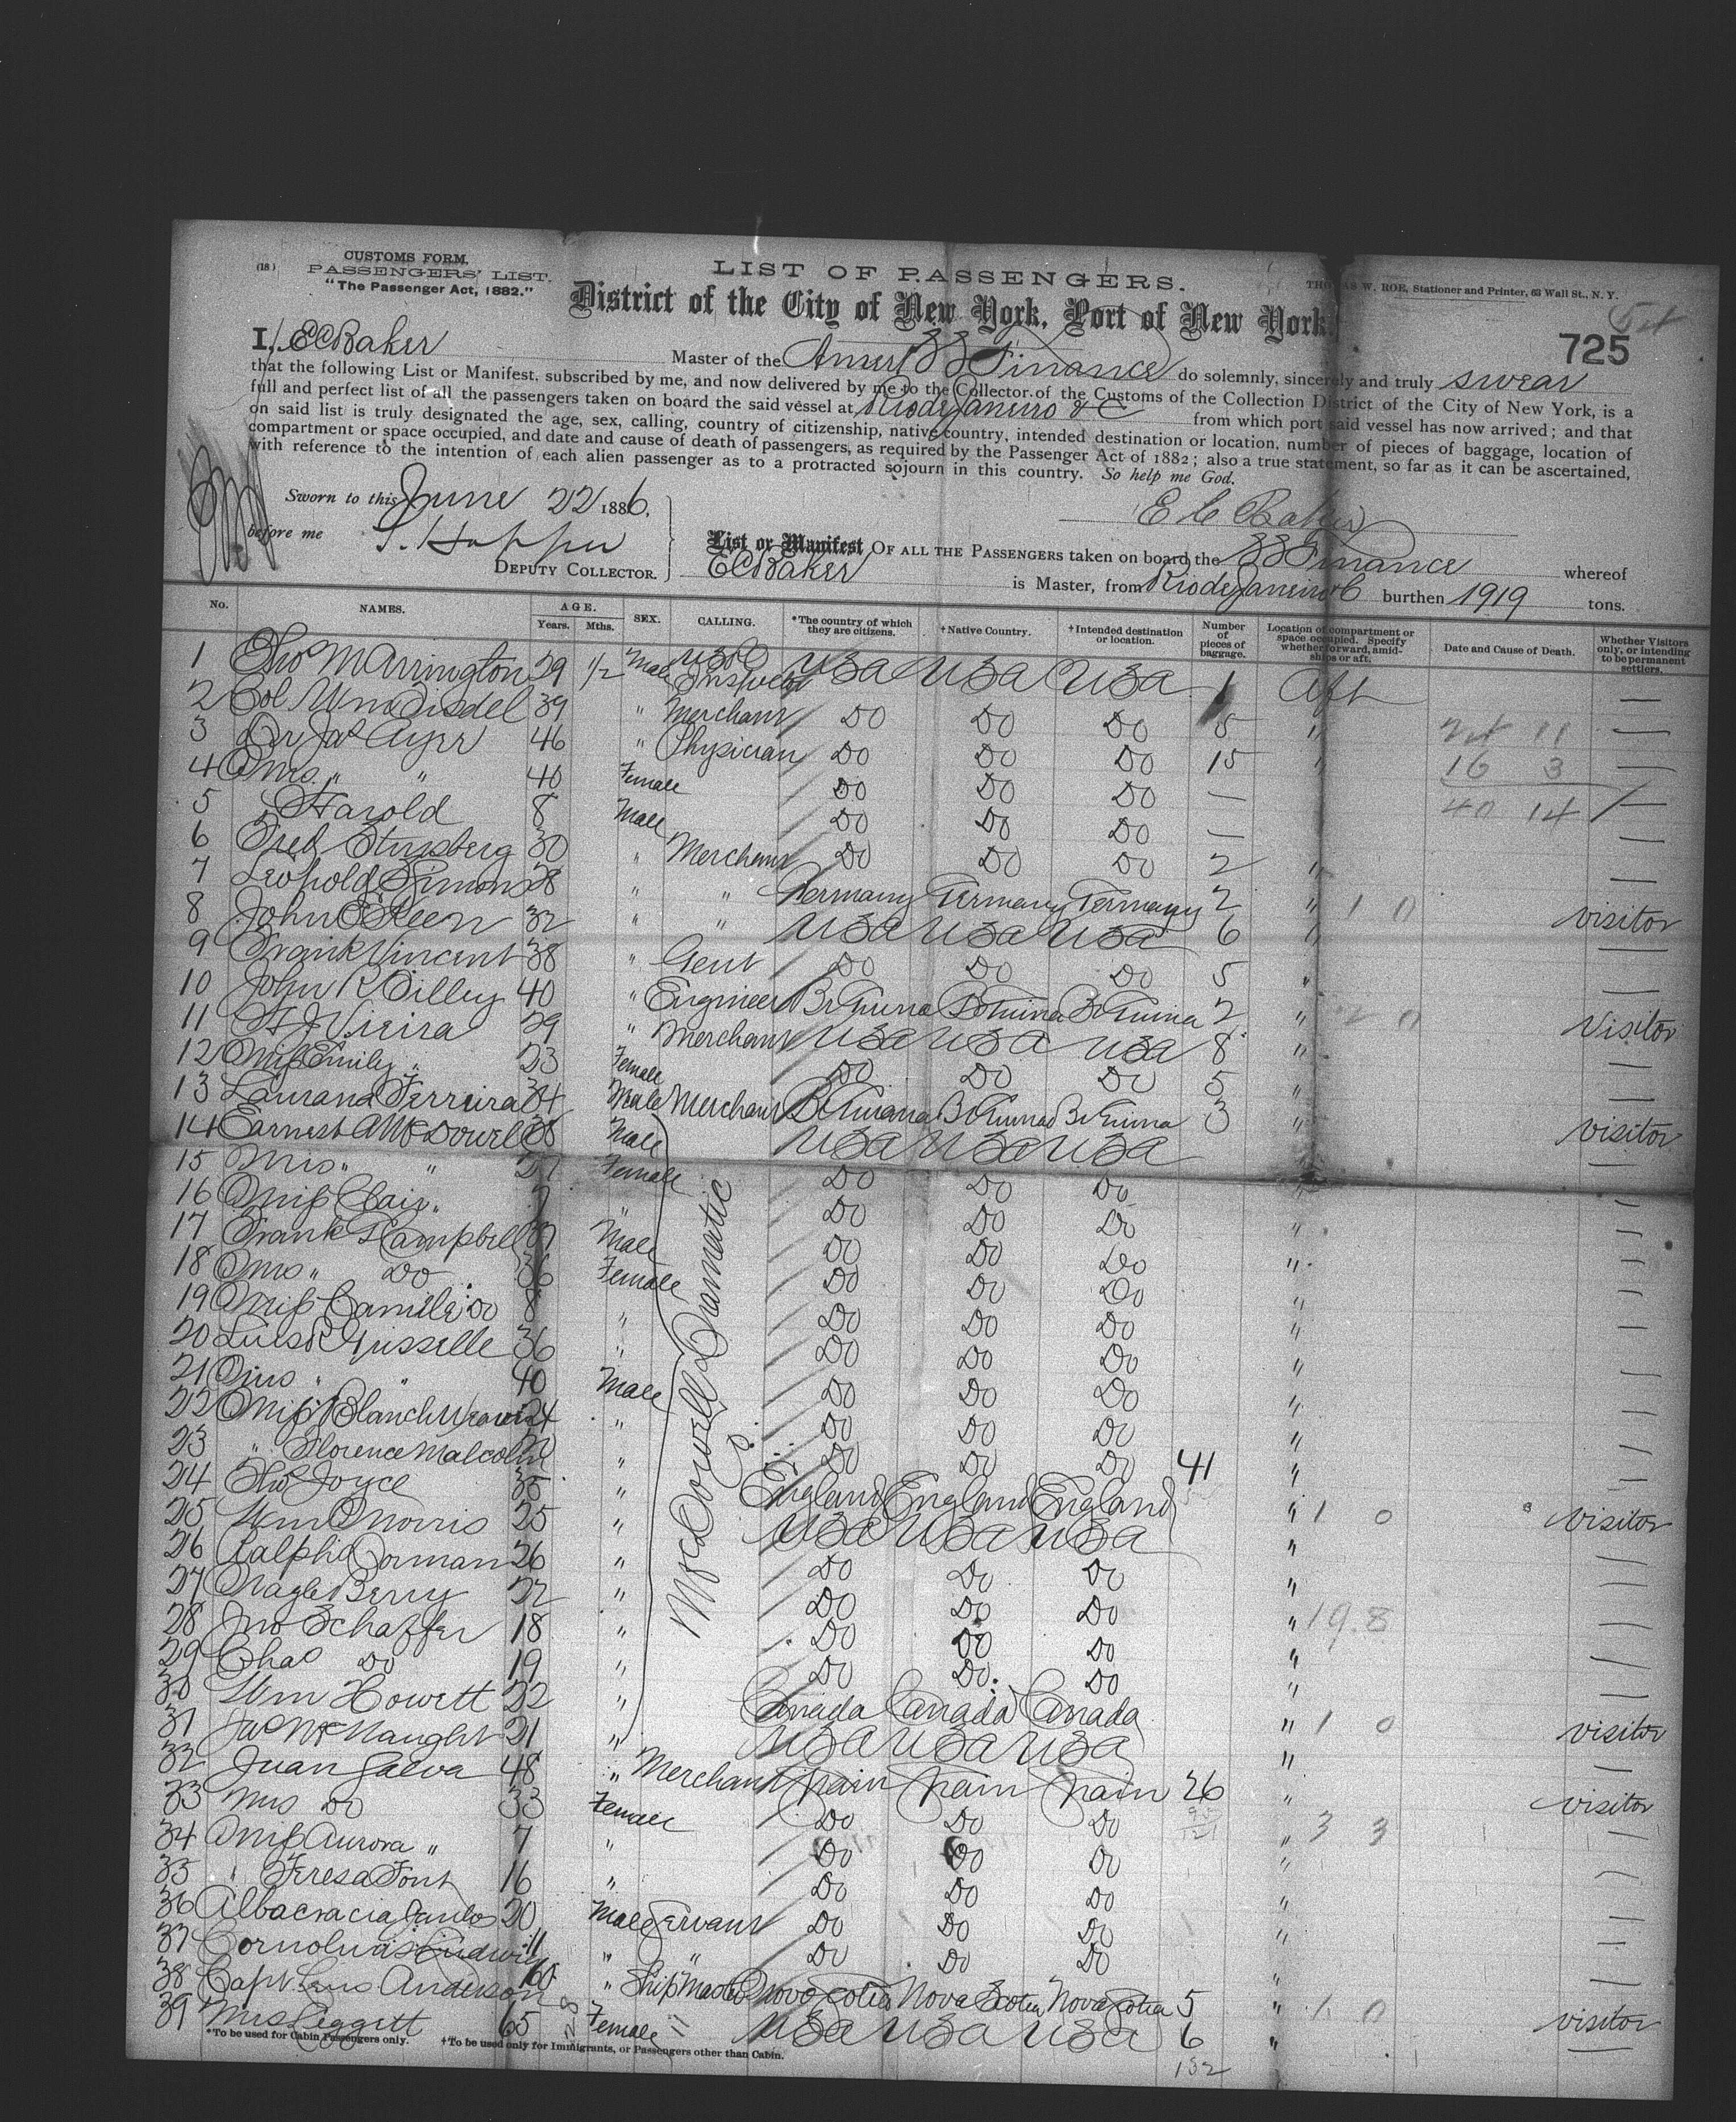 (18)
CUSTOMS FORM.
PASSENGERS' LIST.
"The Passenger Act, 1882."
LIST OF PASSENGERS.
District of the City of New York, Port of New York.
THOMAS W. ROE, Stationer and Printer, 63 Wall St., N. Y.
725
I, E C Baker Master of the Amer SS Finance do solemnly, sincerely and truly swear
that the following List or Manifest, subscribed by me, and now delivered by me to the Collector of the Customs of the Collection District of the City of New York, is a
full and perfect list of all the passengers taken on board the said vessel at Rio de Janeiro &C from which port said vessel has now arrived; and that
on said list is truly designated the age, sex, calling, country of citizenship, native country, intended destination or location, number of pieces of baggage, location of
compartment or space occupied, and date and cause of death of passengers, as required by the Passenger Act of 1882; also a true statement, so far as it can be ascertained,
with reference to the intention of each alien passenger as to a protracted sojourn in this country. So help me God.
Sworn to this June 22 1886,
E C Baker
before me
DEPUTY COLLECTOR.
List or Manifest OF ALL THE PASSENGERS taken on board the SS Finance whereof
E C Baker is Master, from Rio de Janeiro &C burthen 1919 tons.
No. NAMES. AGE. Years. Mths. SEX. CALLING. *The country of which they are citizens. †Native Country. †Intended destination or location. Number of pieces of baggage. Location of compartment or space occupied. Specify whether forward, amidships or aft. Date and Cause of Death. Whether Visitors only, or intending to be permanent settlers.
1 Tho M Arrington 29 1/2 Male USA USA USA 1 Aft —
2 Col Wm 39 " Merchant Do Do Do 8 " —
3 Dr Jas Ayer 46 " Physician Do Do Do 15 " —
4 Mrs " " 40 Female Do Do Do — —
5 " Harold 8 Male Do Do Do — —
6 Fred Stursberg 30 " Merchant Do Do Do 2 " —
7 Leopold Simons 28 " " Germany Germany Germany 2 " 1 0 visitor
8 John C Keen 32 " " USA USA USA 6 " —
9 Frank Vincent 38 " Gent Do Do Do 5 " —
10 John R Gilley 40 " Engineer 2 " 2 0 Visitor
11 Vieira 29 " Merchant USA USA USA 8 " —
12 Miss Emily " 23 Female Do Do Do 5 " —
13 Ferreira 34 Male Merchant 3 " visitor
14 Earnest A McDowell 38 Male McDowell Dramatic Co USA USA USA —
15 Mrs " " 27 Female Do Do Do " —
16 Miss Clair " 7 " Do Do Do —
17 Frank Campbell 37 Male Do Do Do " —
18 Mrs " Do 36 Female Do Do Do " —
19 Miss Camille Do 8 Do Do Do " —
20 36 " Do Do Do " —
21 Mrs " " 40 Male Do Do Do " —
22 Miss Blanch 24 " Do Do Do " —
23 " Florence Malcolm " Do Do Do 41 " —
24 Tho Joyce 35 " England England England " 1 0 visitor
25 Wm Morris 25 " USA USA USA " —
26 Ralph Dorman 26 " Do Do Do " —
27 Nagle Berry 22 " Do Do Do " 19 8 —
28 Jno Schaffer 18 " Do Do Do " —
29 Chas Do 19 " Do Do Do " —
30 Wm Howett 22 " Canada Canada Canada " 1 0 visitor
31 Jas McNaught 21 " USA USA USA " —
32 Juan Galva 48 " Merchant Spain Spain Spain 26 " visitor
33 Mrs Do 33 Female Do Do Do " 3 3 —
34 Miss Aurora " 7 " Do Do Do " —
35 " Teresa Font 16 " Do Do Do " —
36 20 Male Servant Do Do Do " —
37 11 " " Do Do Do —
38 Capt Anderson 60 " Ship Master Nova Scotia Nova Scotia Nova Scotia 5 " 1 0 visitor
39 Mrs Leggett 65 Female USA USA USA 6 " —
132
*To be used for Cabin Passengers only. †To be used only for Immigrants, or Passengers other than Cabin.